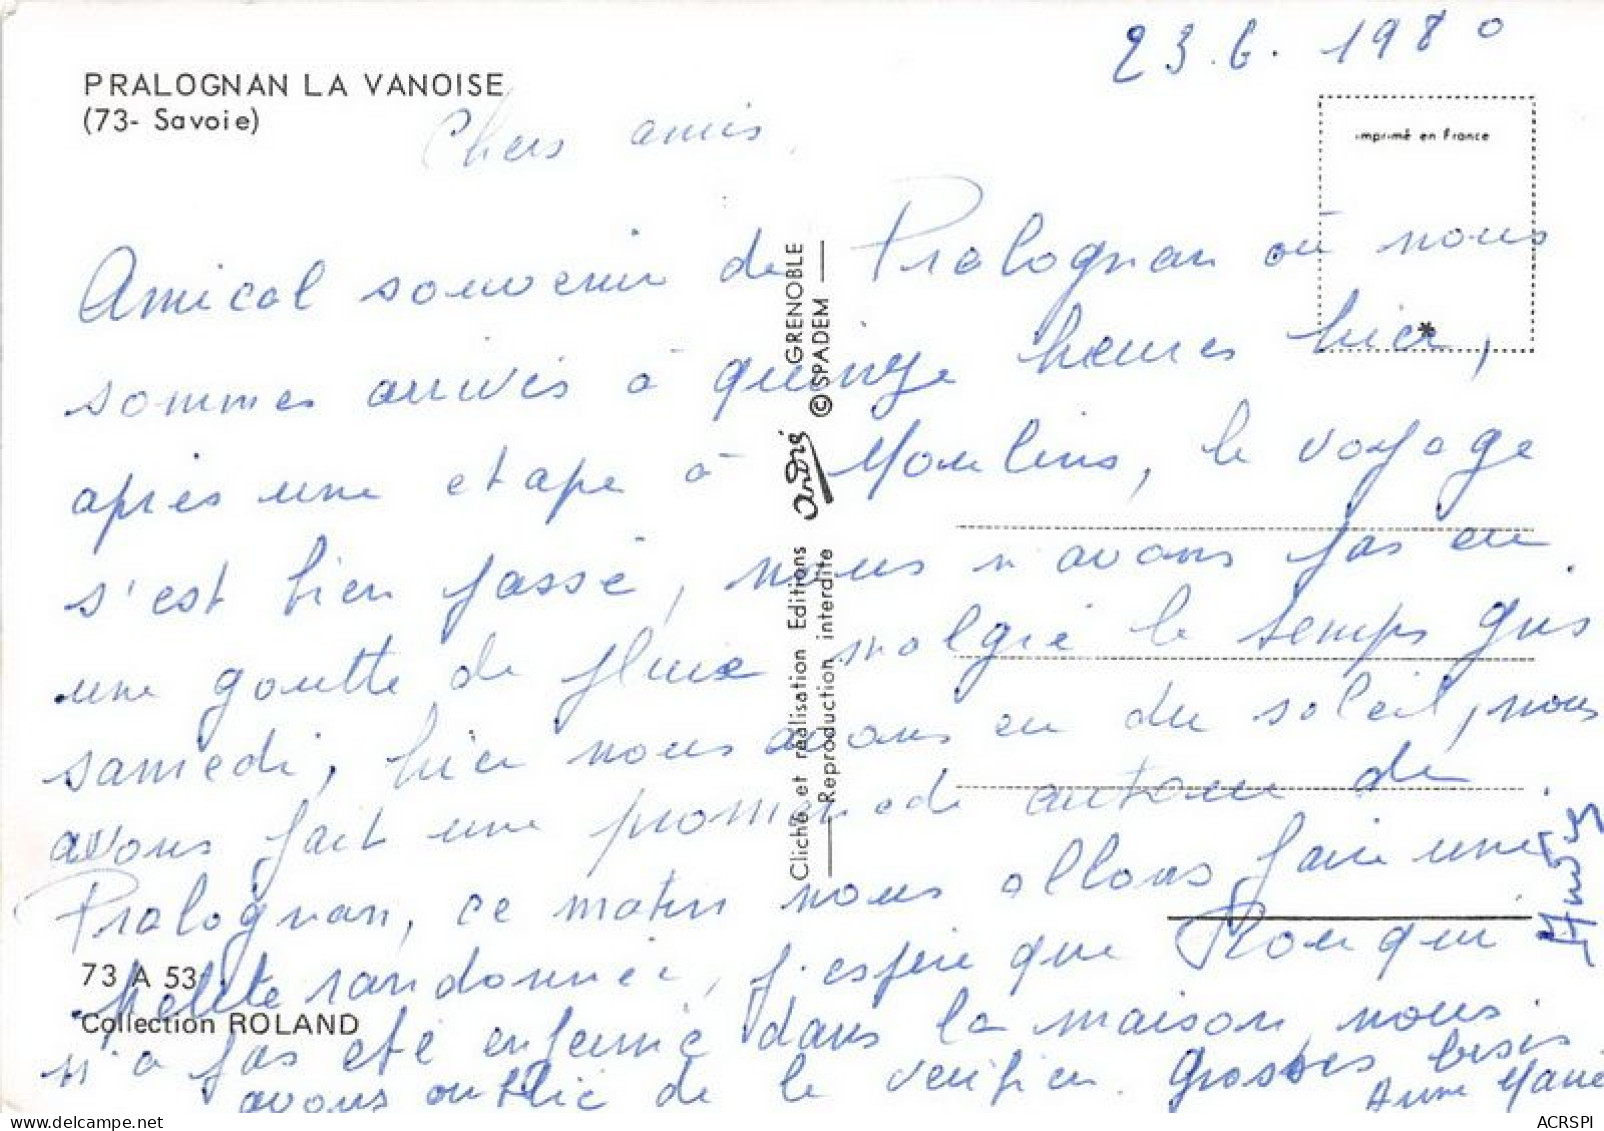 23.6.1980
PRALOGNAN LA VANOISE
(73- Savoie)
imprimé en France
Chers amis,
Amical souvenir de Pralognan où nous
sommes arrivés à quinze heures hier,
après une etape à Moulins, le voyage
s'est bien passé, nous n'avons pas eu
une goutte de pluie malgré le temps gris
samedi, hier nous avons eu du soleil, nous
avons fait une promenade autour de
Pralognan, ce matin nous allons faire une
petite randonnée, j'espère que Rouqui
n'a pas été enfermé dans la maison, nous
avons oublié de le verifier. Grosses bises
Anne Marie
*
Cliché et réalisation Editions André GRENOBLE
Reproduction interdite © SPADEM
73 A 53
Collection ROLAND
ACRSPI